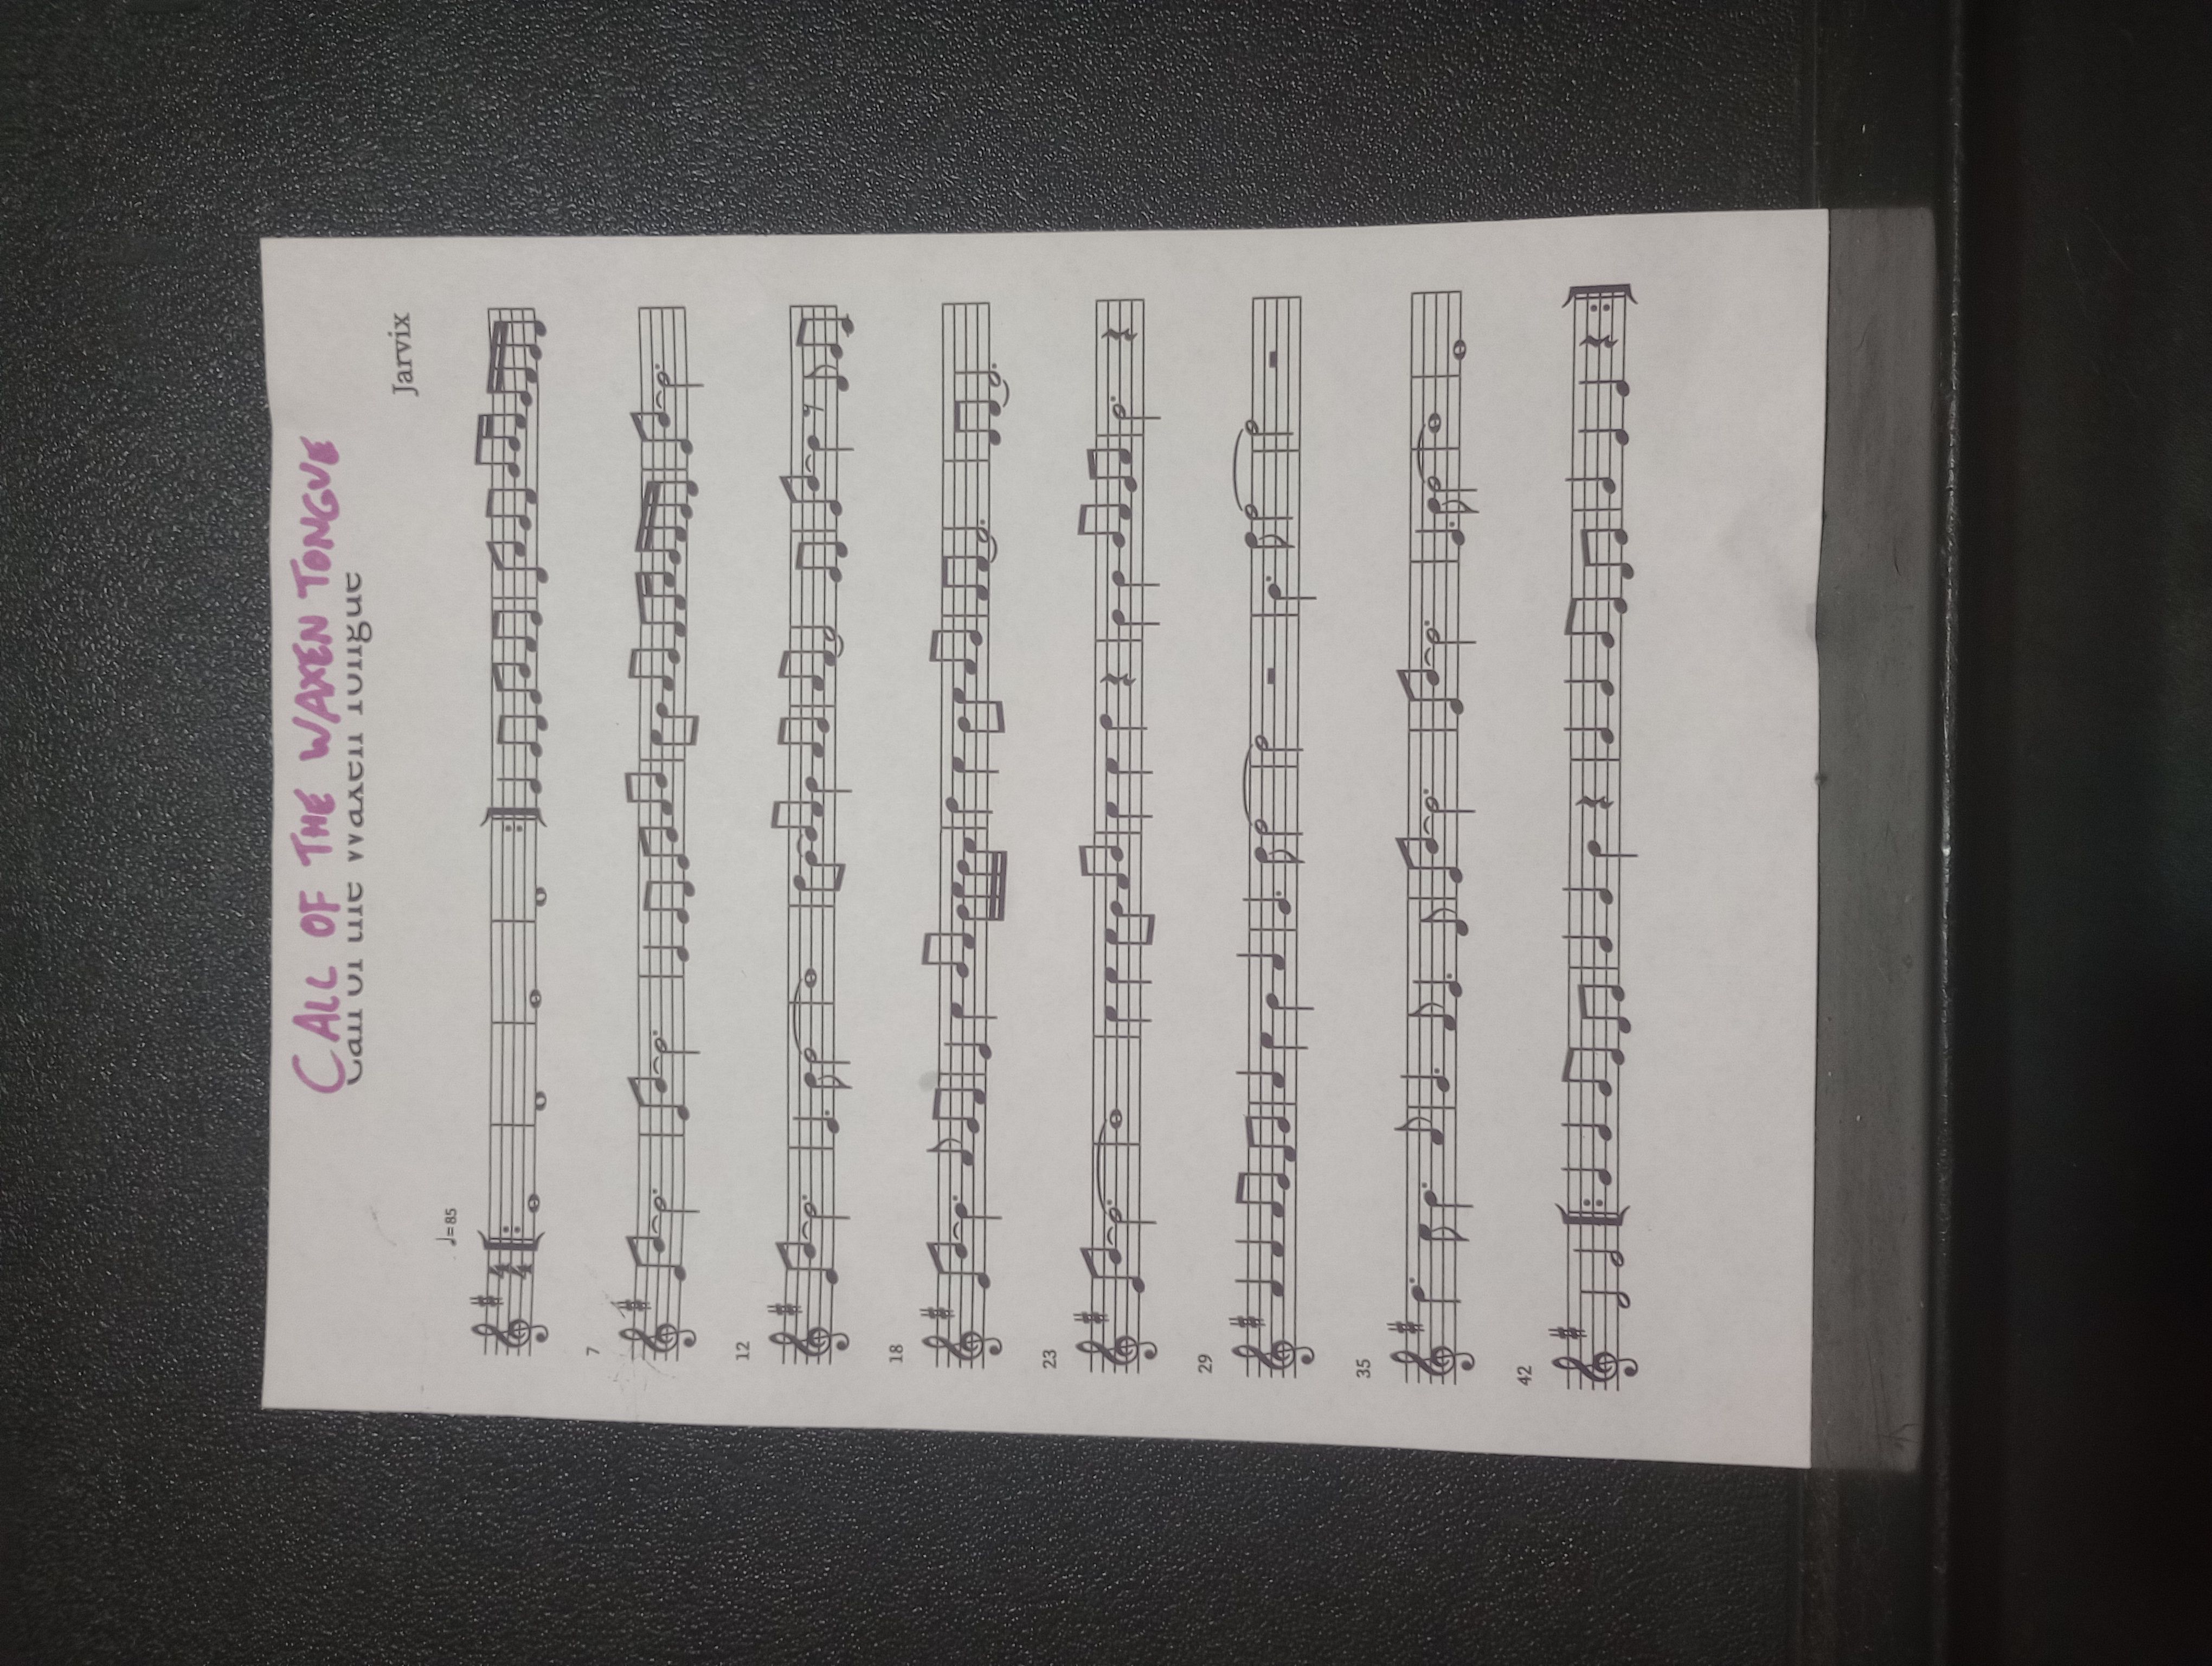 CALL OF THE WAXEN TONGUE
Call of the Waxen Tongue
Jarvix
♩=85
4
4
7
12
18
23
29
35
42